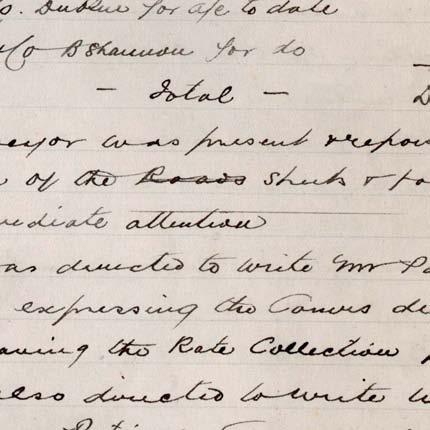 s. Dublin for a/c to date
Co B Shannon for do
— Total —
was present & repor
of the Roads Sheets &
mediate attention
was directed to write Mr Pa
expressing the Comrs
aving the Rate Collection
also directed to write